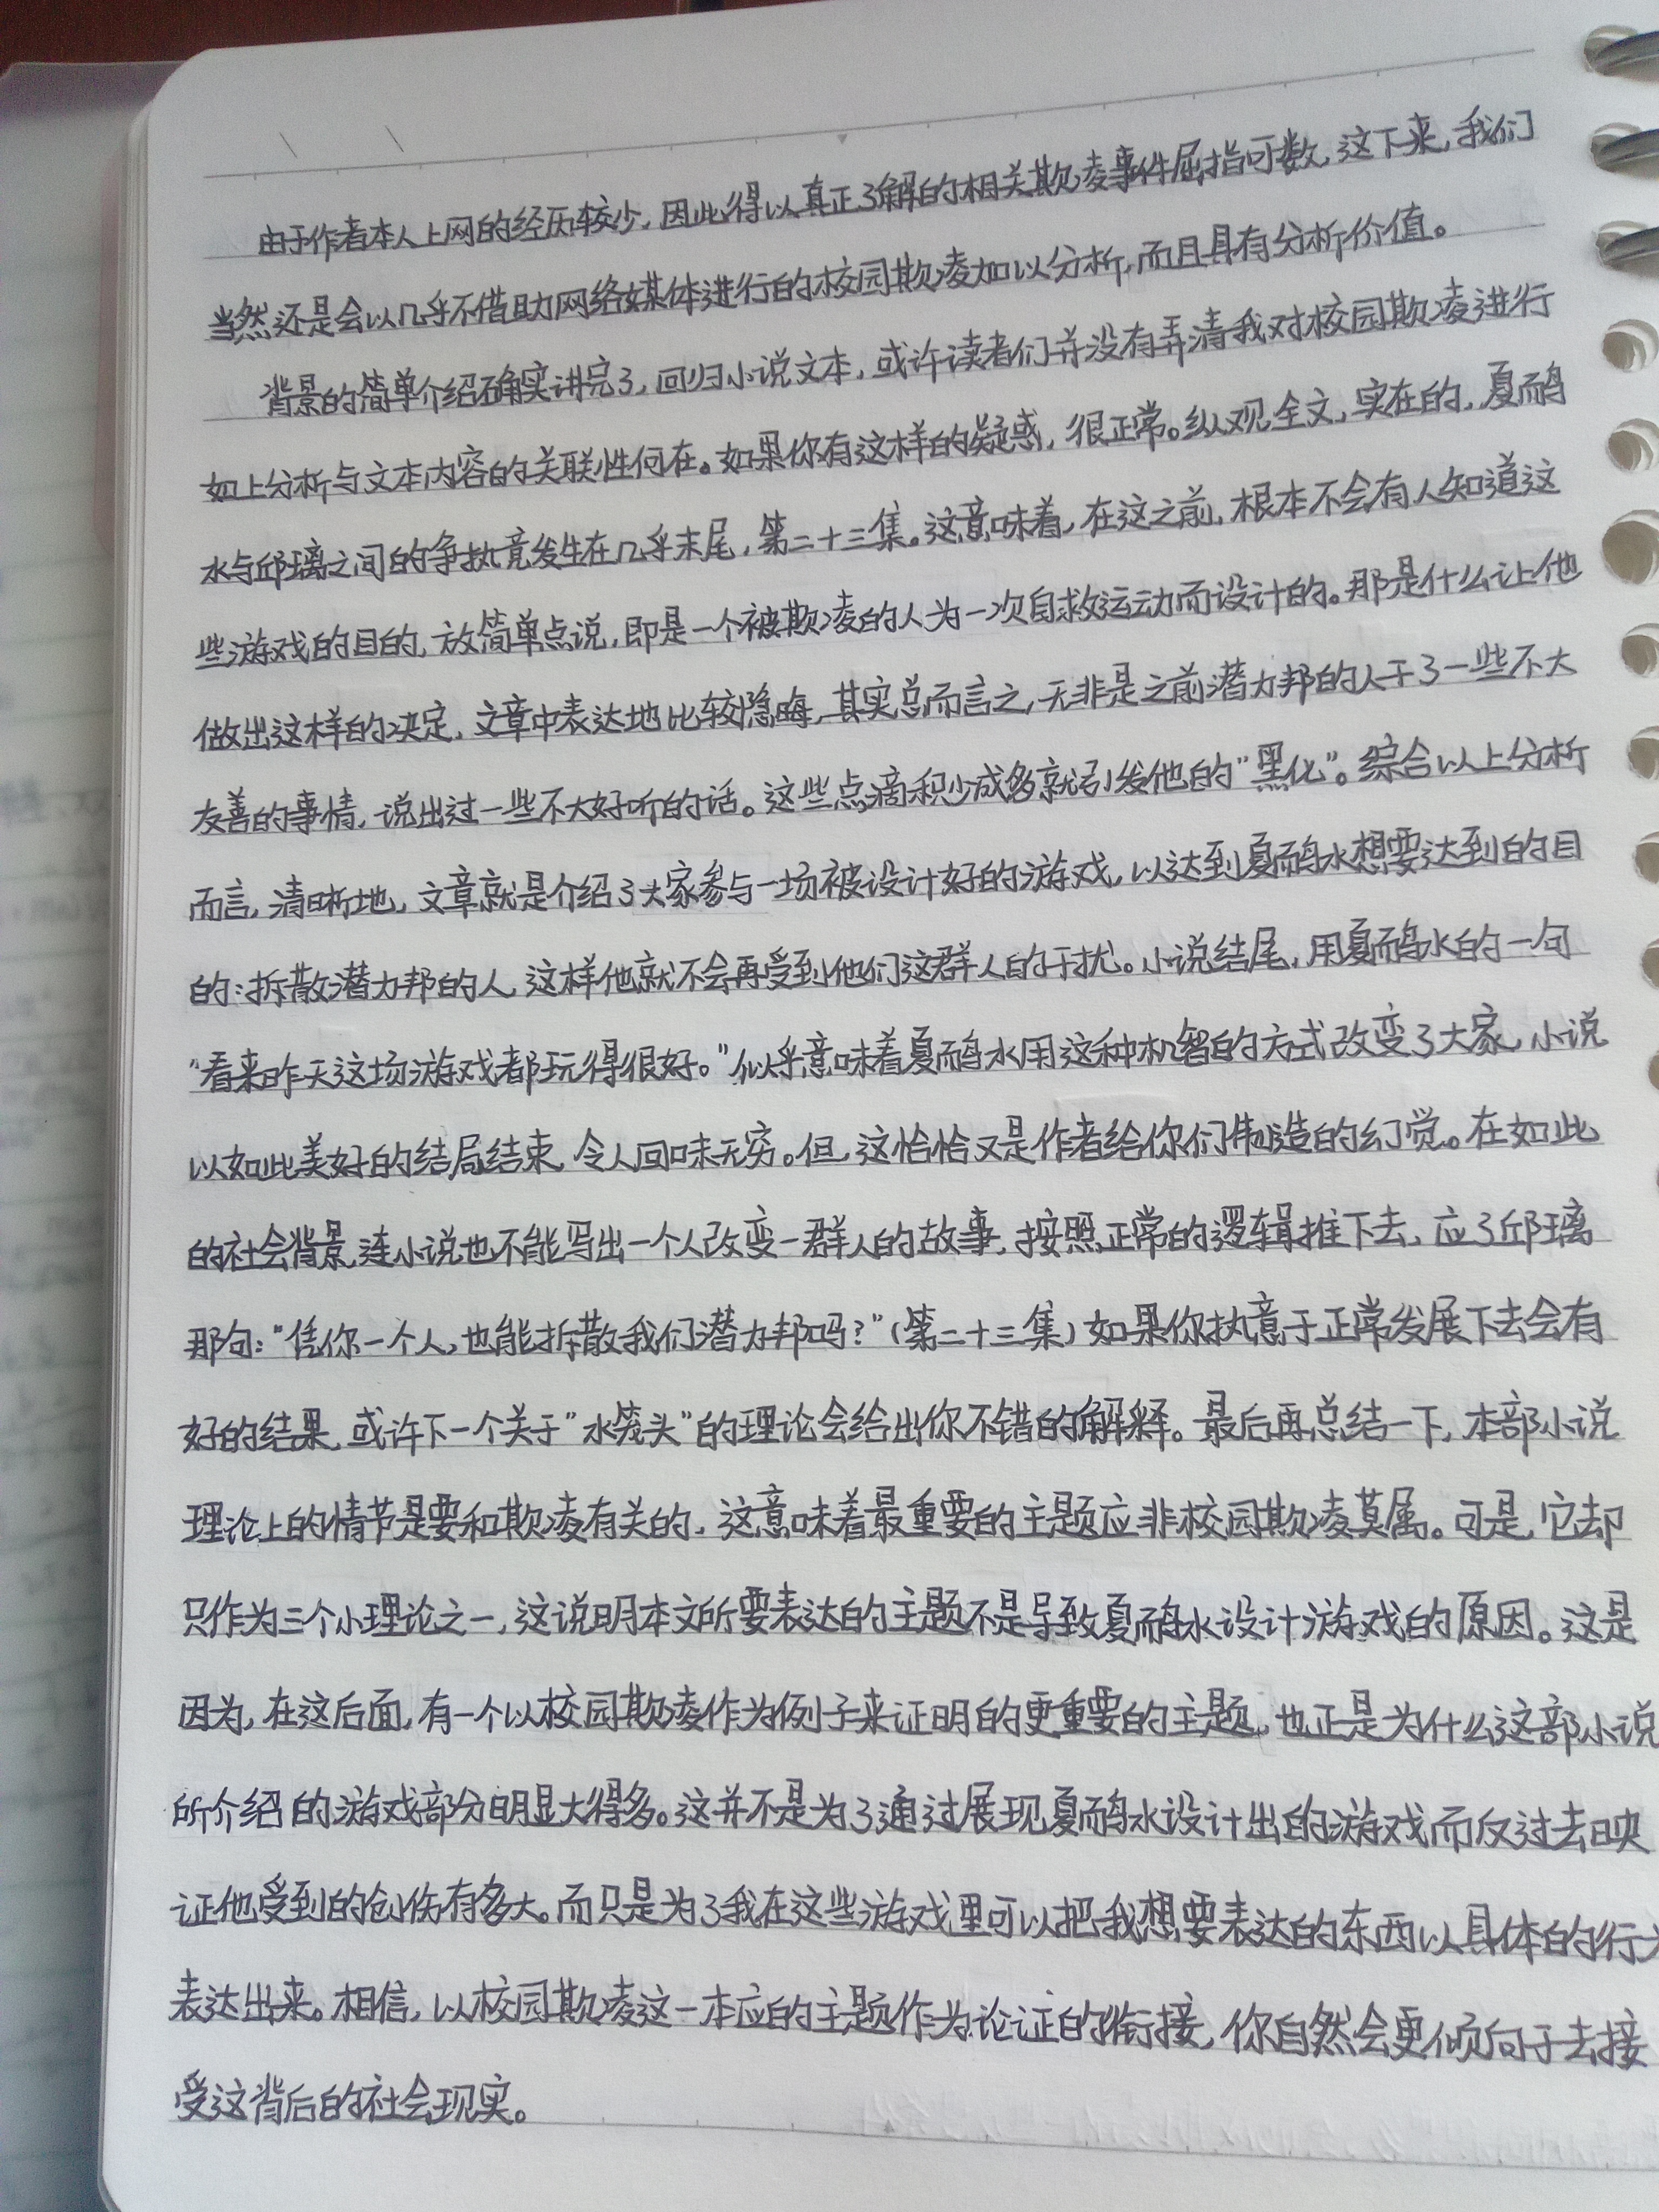 由于作者本人上网的经历较少，因此得以真正了解的相关欺凌事件屈指可数，这下来，我们
当然还是会以几乎不借助网络媒体进行的校园欺凌加以分析，而且具有分析价值。
背景的简单介绍确实讲完了，回归小说文本，或许读者们并没有弄清我对校园欺凌进行
如上分析与文本内容的关联性何在。如果你有这样的疑惑，很正常。纵观全文，实在的，夏雨
水与邱璃之间的争执竟发生在几乎末尾，第二十三集。这意味着，在这之前，根本不会有人知道这
些游戏的目的，放简单点说，即是一个被欺凌的人为一次自救运动而设计的。那是什么让他
做出这样的决定，文章中表达地比较隐晦，其实总而言之，无非是之前潜力邦的人干了一些不大
友善的事情，说出过一些不大好听的话。这些点滴积少成多就引发他的“黑化”。综合以上分析
而言，清晰地，文章就是介绍了大家参与一场被设计好的游戏，以达到夏水想要达到的目
的：拆散潜力邦的人，这样他就不会再受到他们这群人的干扰。小说结尾，用夏水的一句
“看来昨天这场游戏都玩得很好。”似乎意味着夏水用这种机智的方式改变了大家，小说
以如此美好的结局结束，令人回味无穷。但，这恰恰又是作者给你们制造的幻觉。在如此
的社会背景，连小说也不能写出一个人改变一群人的故事，按照正常的逻辑推下去，应了邱璃
那句：“凭你一个人，也能拆散我们潜力邦吗？”（第二十三集）如果你执意于正常发展下去会有
好的结果，或许下一个关于“水笼头”的理论会给出你不错的解释。最后再总结一下，本部小说
理论上的情节是要和欺凌有关的，这意味着最重要的主题应非校园欺凌莫属。可是，它却
只作为三个小理论之一，这说明本文所要表达的主题不是导致夏水设计游戏的原因。这是
因为，在这后面，有一个以校园欺凌作为例子来证明的更重要的主题，也正是为什么这部小说
所介绍的游戏部分明显大得多。这并不是为了通过展现夏水设计出的游戏而反过去映
证他受到的创伤有多大。而只是为了我在这些游戏里可以把我想要表达的东西以具体的行
表达出来。相信，以校园欺凌这一本应的主题作为论证的衔接，你自然会更倾向于去接
受这背后的社会现实。